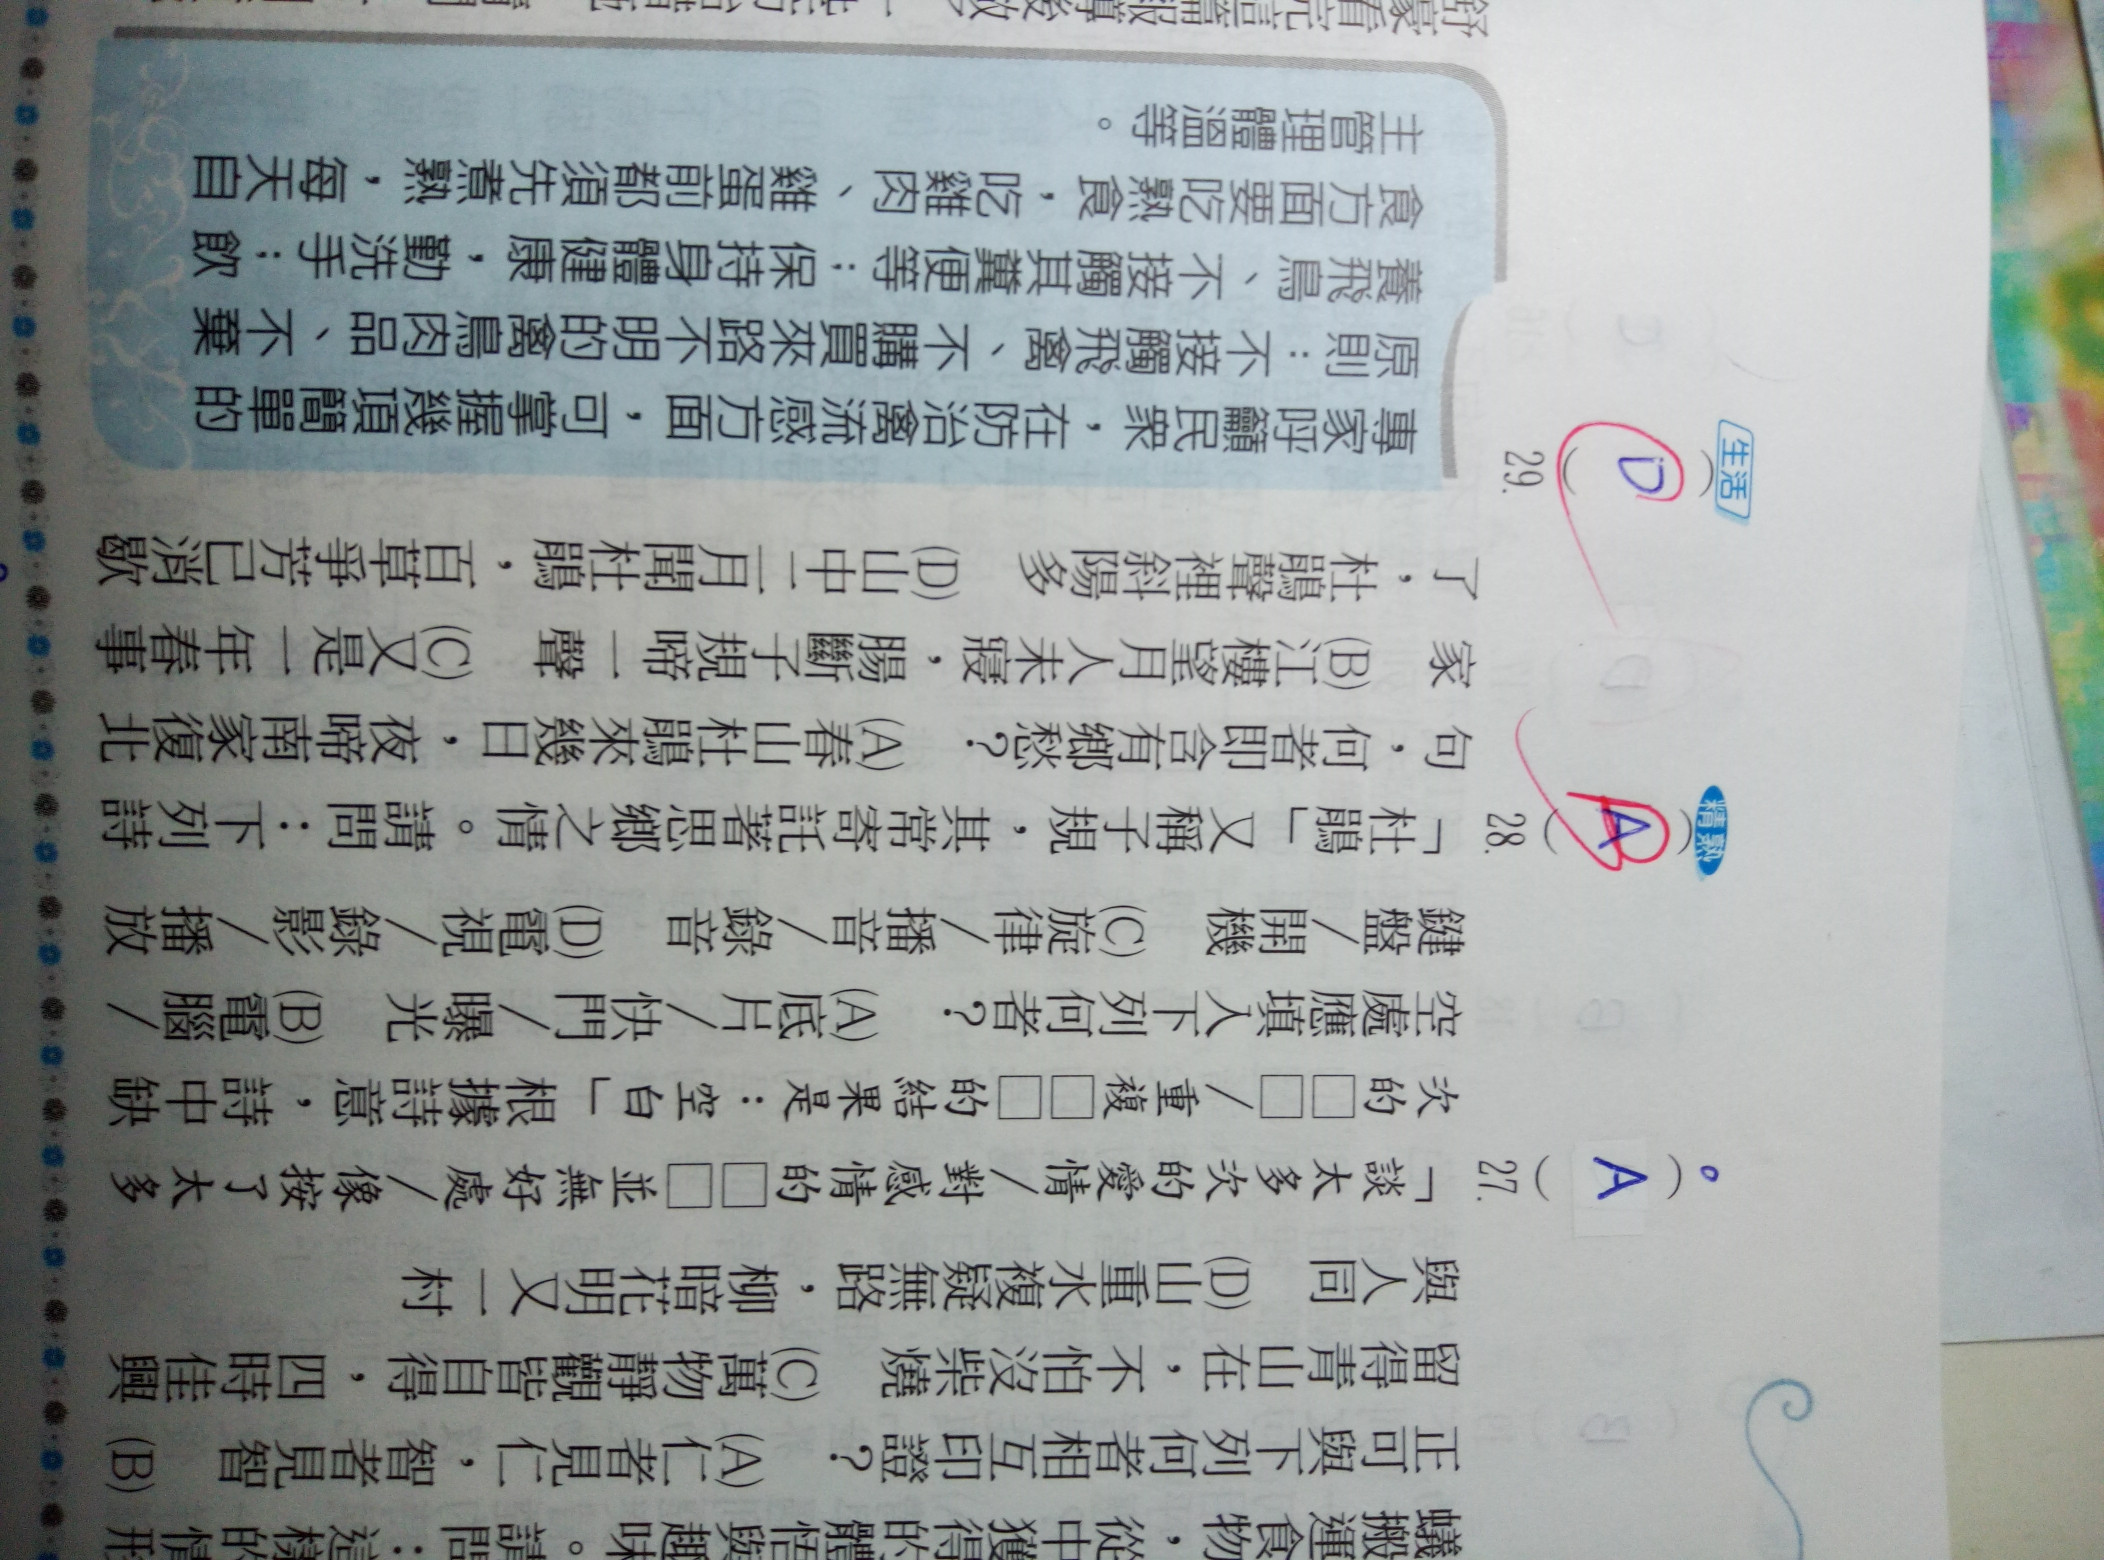 蟻搬運食物，從中獲得的體悟與趣味。請問：這樣的情形
正可與下列何者相互印證？　(A)仁者見仁，智者見智　(B)
留得青山在，不怕沒柴燒　(C)萬物靜觀皆自得，四時佳興
與人同　(D)山重水複疑無路，柳暗花明又一村
( A ) 27.「談太多次的愛情／對感情的□□並無好處／像按了太多
次的□□／重複□□的結果是：空白」根據詩意，詩中缺
空處應填入下列何者？　(A)底片／快門／曝光　(B)電腦／
鍵盤／開機　(C)旋律／播音／錄音　(D)電視／錄影／播放
精熟 ( A B ) 28.「杜鵑」又稱子規，其常寄託著思鄉之情。請問：下列詩
句，何者即含有鄉愁？　(A)春山杜鵑來幾日，夜啼南家復北
家　(B)江樓望月人未寢，腸斷子規啼一聲　(C)又是一年春事
了，杜鵑聲裡斜陽多　(D)山中二月聞杜鵑，百草爭芳已消歇
生活 ( D ) 29.
專家呼籲民眾，在防治禽流感方面，可掌握幾項簡單的
原則：不接觸飛禽、不購買來路不明的禽鳥肉品、不棄
養飛鳥、不接觸其糞便等；保持身體健康，勤洗手；飲
食方面要吃熟食，吃雞肉、雞蛋前都須先煮熟，每天自
主管理體溫等。